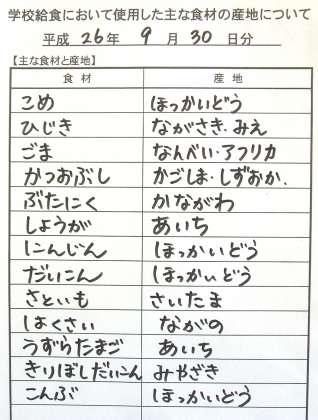 学校給食において使用した主な食材の産地について
平成 26年 9月 30日分
【主な食材と産地】
食材 産地
こめ ほっかいどう
ひじき ながさき・みえ
ごま なんべい・アフリカ
かつおぶし かごしま・しずおか.
ぶたにく かながわ
しょうが あいち
にんじん ほっかいどう
だいこん ほっかいどう
さといも さいたま
はくさい ながの
うずらたまご あいち
きりぼしだいこん みやざき
こんぶ ほっかいどう